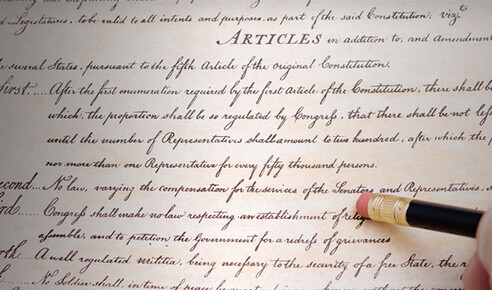 d Legislatures, to be valid to all intents and purposes, as part of the said Constitution; vizt.
ARTICLES in addition to, and Amendment
the several States, pursuant to the fifth Article of the original Constitution.
First.... After the first enumeration required by the first Article of the Constitution, there shall be
which, the proportion shall be so regulated by Congress, that there shall be not less
until the number of Representatives shall amount to two hundred, after which the p
nor more than one Representative for every fifty thousand persons.
Second... No law, varying the compensation for the services of the Senators and Representatives, s
ird... Congress shall make no law respecting an establishment of relig
assemble, and to petition the Government for a redress of grievances
rth.. A well regulated militia, being necessary to the security of a free State, the r
No Soldier shall, in time of peace be